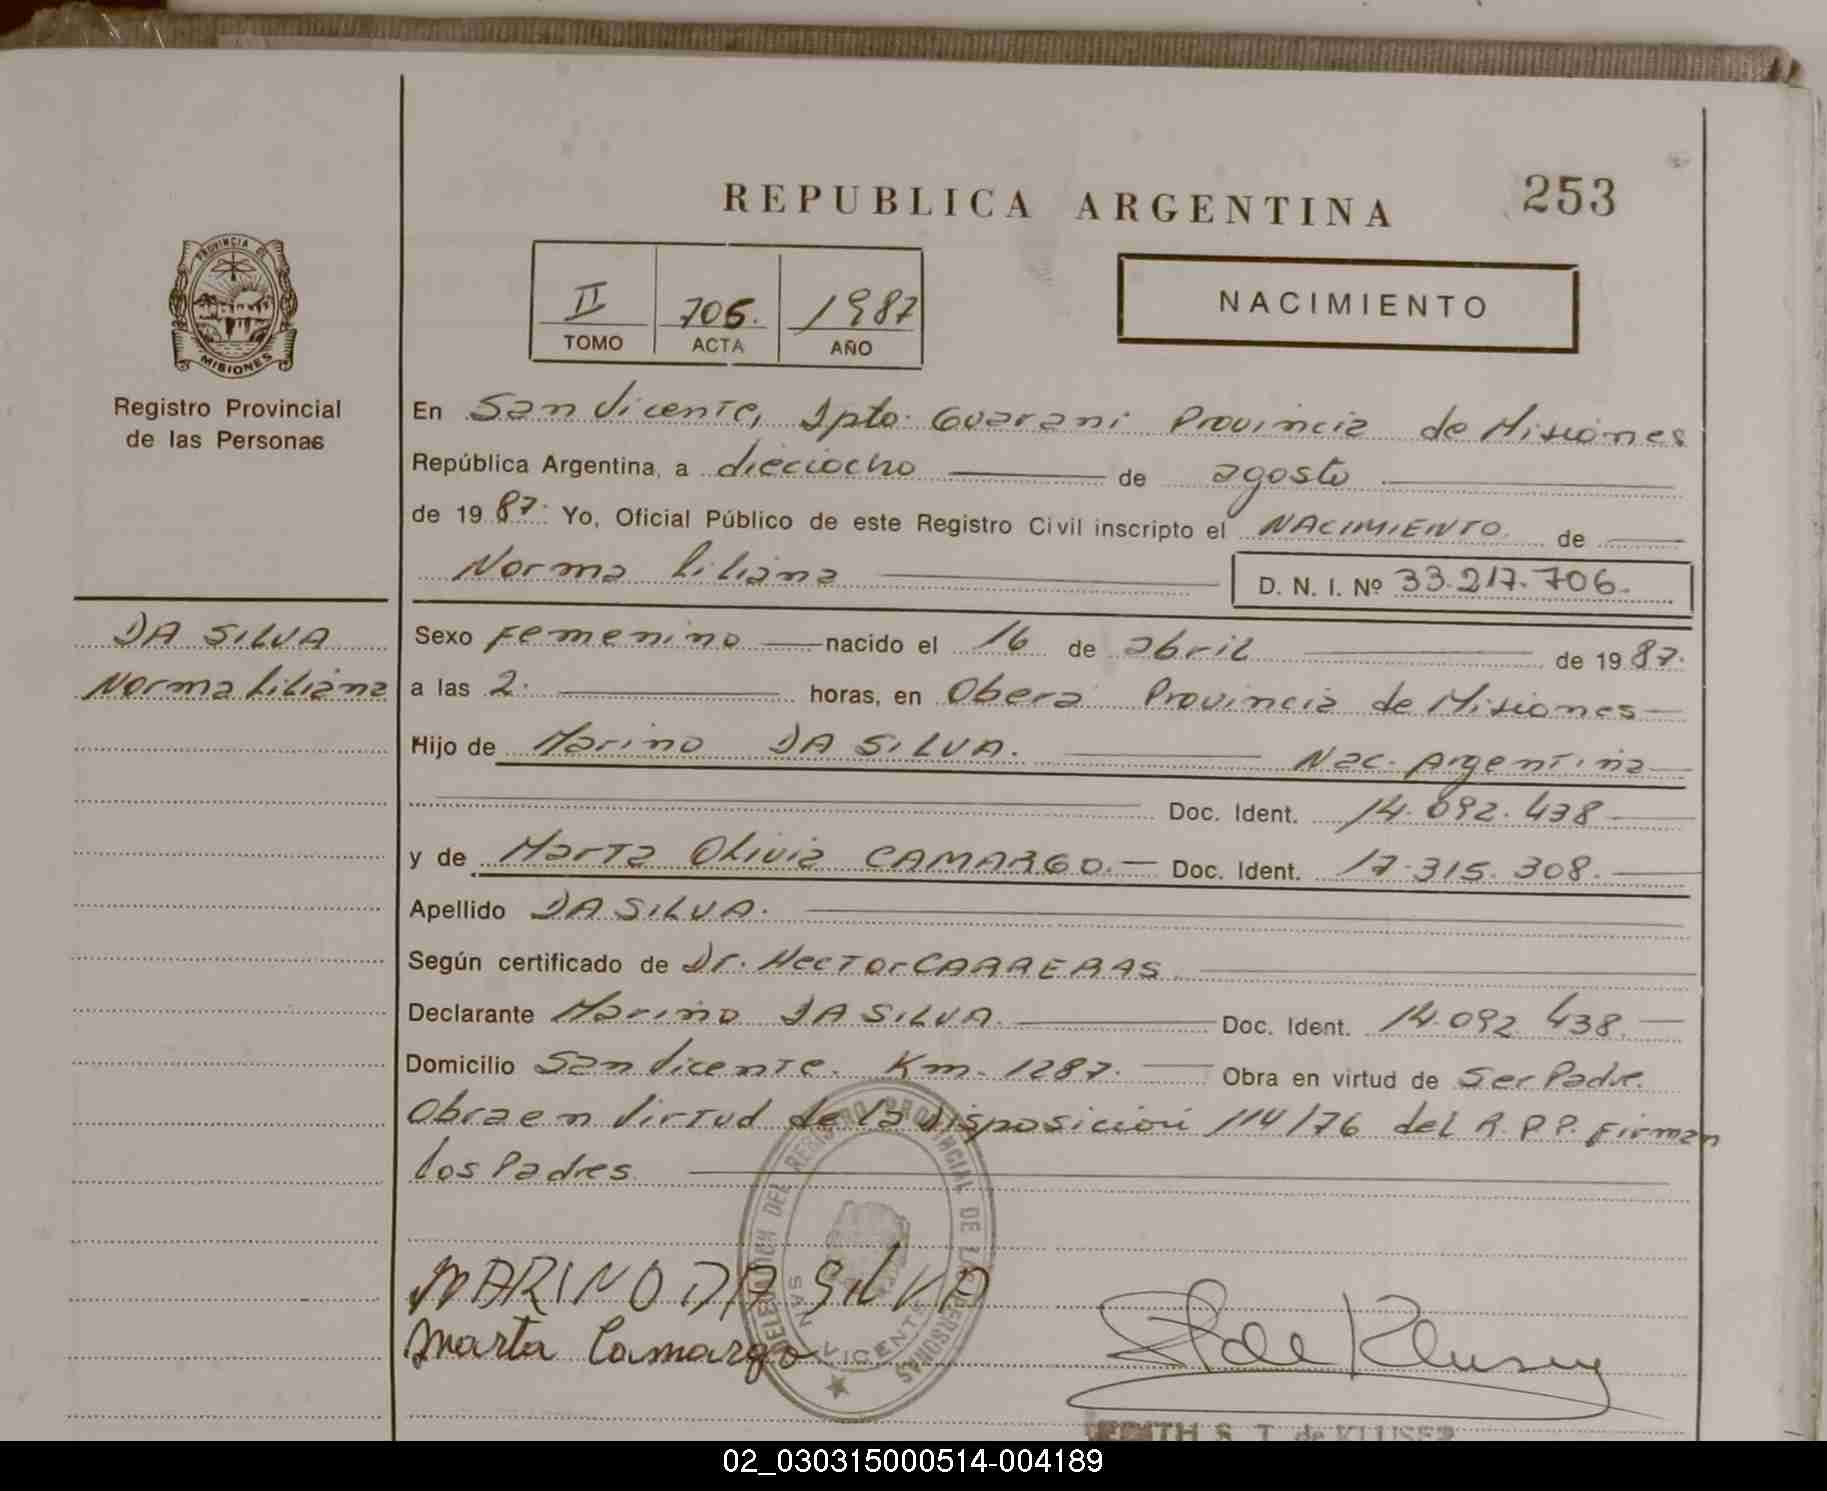 REPUBLICA ARGENTINA
253
PROVINCIA DE
MISIONES
Registro Provincial
de las Personas
II 706. 1987
TOMO ACTA AÑO
NACIMIENTO
En San Vicente, Dpto. Guarani Provincia de Misiones
República Argentina, a dieciocho de agosto
de 1987. Yo, Oficial Público de este Registro Civil inscripto el NACIMIENTO de
Norma Liliana D. N. I. Nº 33.217.706.
DA SILVA
Norma Liliana
Sexo Femenino nacido el 16 de abril de 1987.
a las 2. horas, en Obera Provincia de Misiones
Hijo de Marino DA SILVA. Nac. Argentina
Doc. Ident. 14.092.438
y de Marta Olivia CAMARGO. Doc. Ident. 17.315.308.
Apellido DA SILVA.
Según certificado de Dr. Hector CARRERAS
Declarante Marino DA SILVA. Doc. Ident. 14.092.438.
Domicilio San Vicente. Km. 1287. Obra en virtud de Ser Padre.
Obra en Virtud de la Disposición 114/76 del R.P.P. Firman
los Padres.
DELEGACION DEL REGISTRO PROVINCIAL DE LAS PERSONAS
SAN VICENTE
MARINO DA SILVA
Marta Camargo
de Kluser
EDITH S. T. de KLUSER
02_030315000514-004189